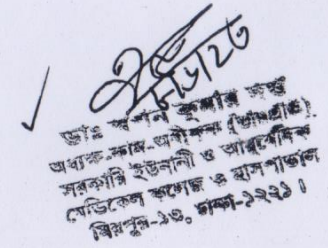 ৮/১/২৩
ডাঃ স্বপন কুমার দত্ত
অধ্যক্ষ-কাম-অধীক্ষক (ভারপ্রাপ্ত)
সরকারি ইউনানী ও আয়ুর্বেদিক
মেডিকেল কলেজ ও হাসপাতাল
মিরপুর-১৩, ঢাকা-১২২১।